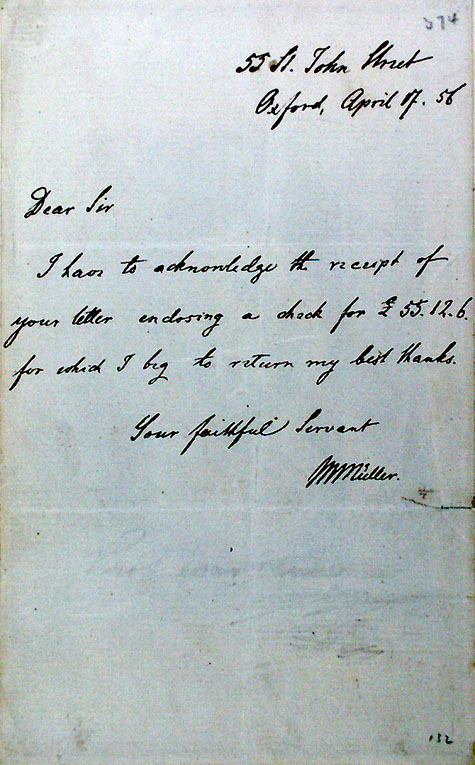 374
55 St. John Street
Oxford, April 17. 56
Dear Sir
I have to acknowledge the receipt of
your letter enclosing a check for £ 55.12.6.
for which I beg to return my best thanks.
Your faithful Servant
MMüller.
132